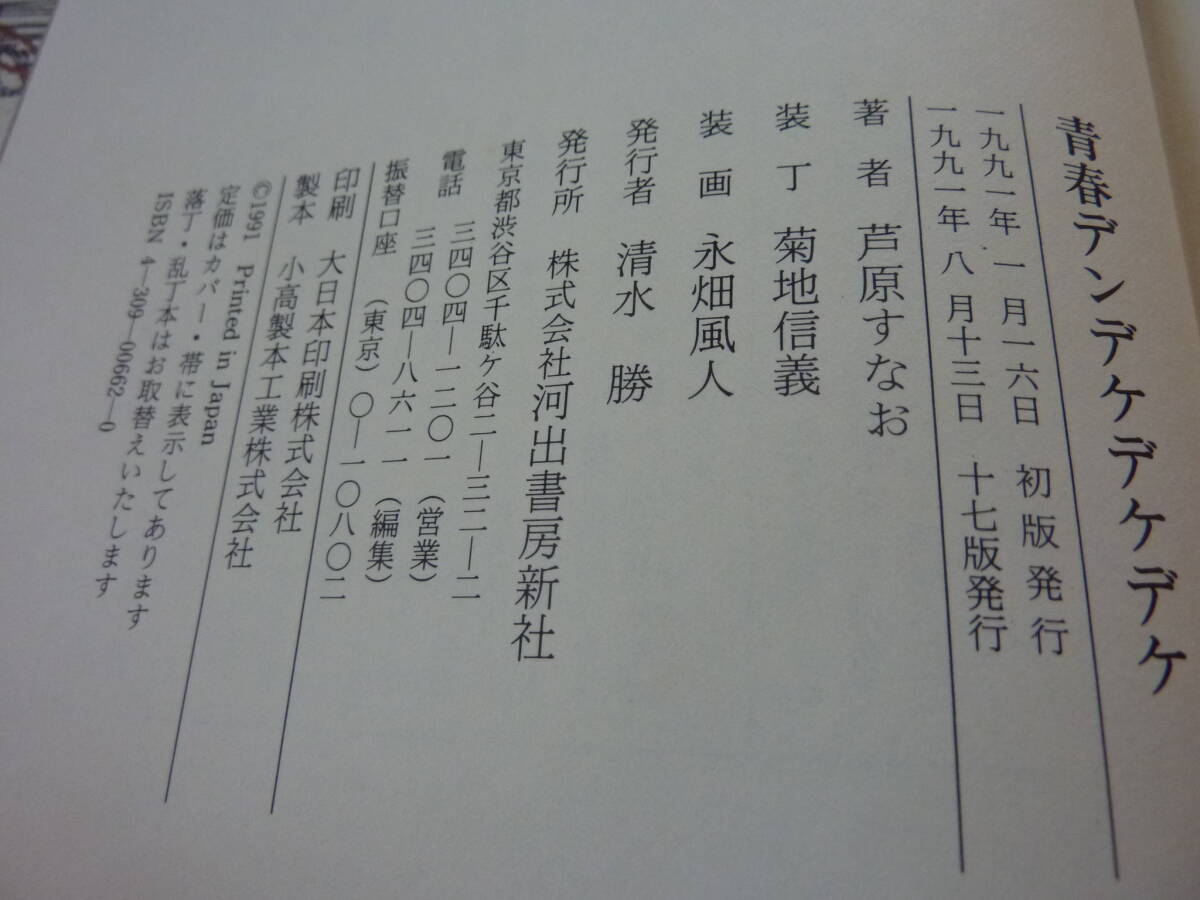 青春デンデケデケデケ
一九九一年 一月一六日 初版発行
一九九一年 八月十三日 十七版発行
著者 芦原すなお
装丁 菊地信義
装画 永畑風人
発行者 清水 勝
発行所 株式会社河出書房新社
東京都渋谷区千駄ケ谷二―三二―二
電話 三四〇四―一二〇一(営業)
三四〇四―八六一一(編集)
振替口座 (東京)〇―一〇八〇二
印刷 大日本印刷株式会社
製本 小高製本工業株式会社
©1991 Printed in Japan
定価はカバー・帯に表示してあります
落丁・乱丁本はお取替えいたします
ISBN 4―309―00662―0